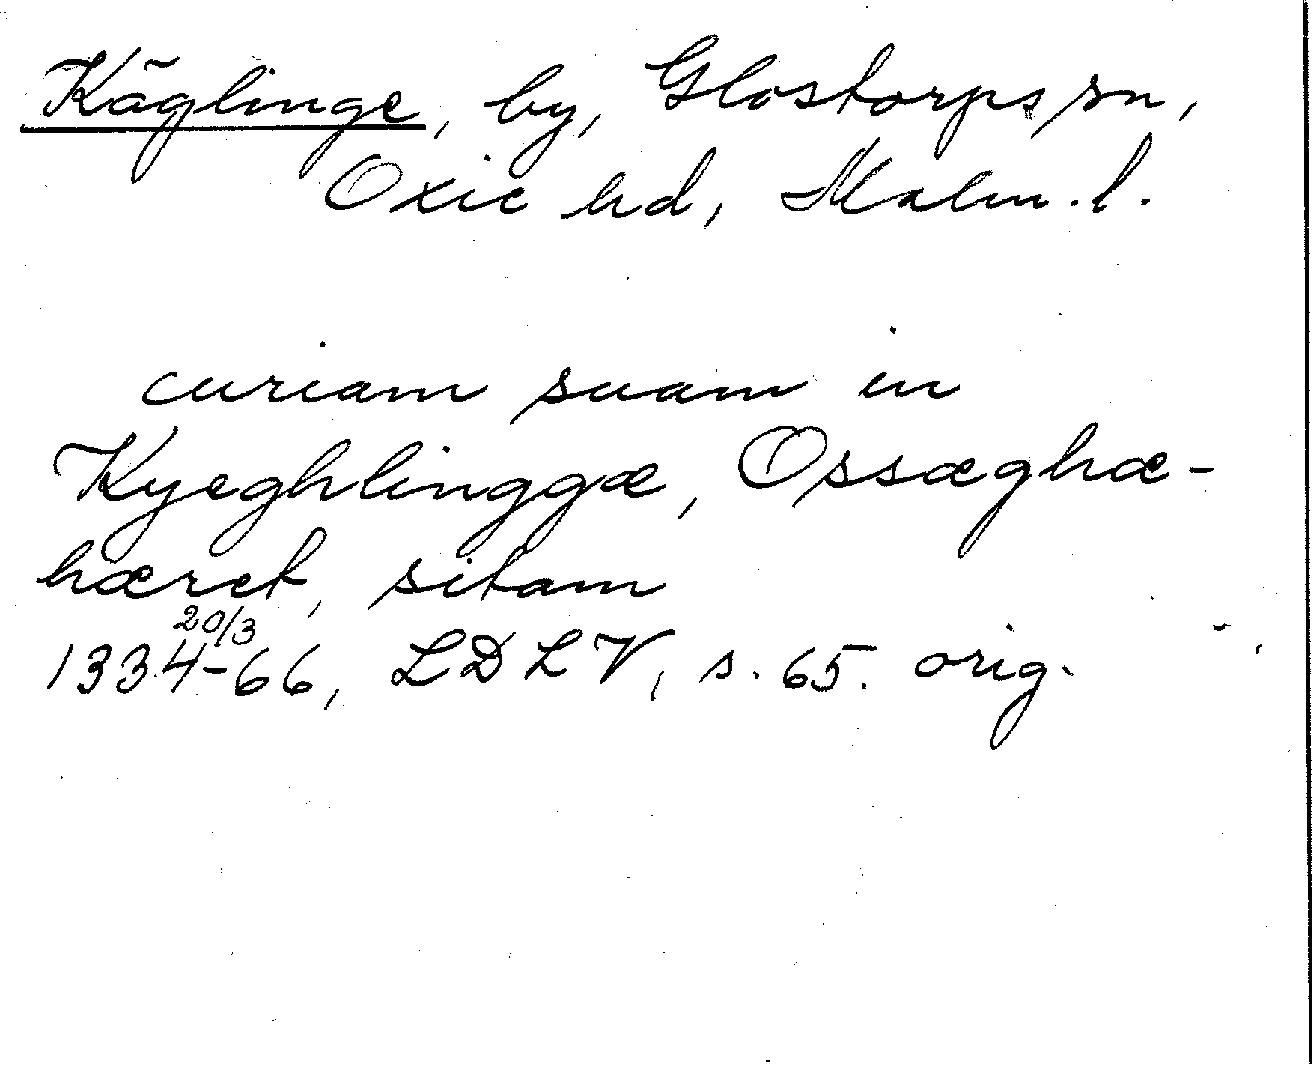 Käglinge, by, Glostorps sn,
Oxie hd, Malm. l.
curiam suam in
Kyeghlinggæ, Ossæghæ-
hæret, sitam
20/3
1334-66, LDLV, s. 65. orig.